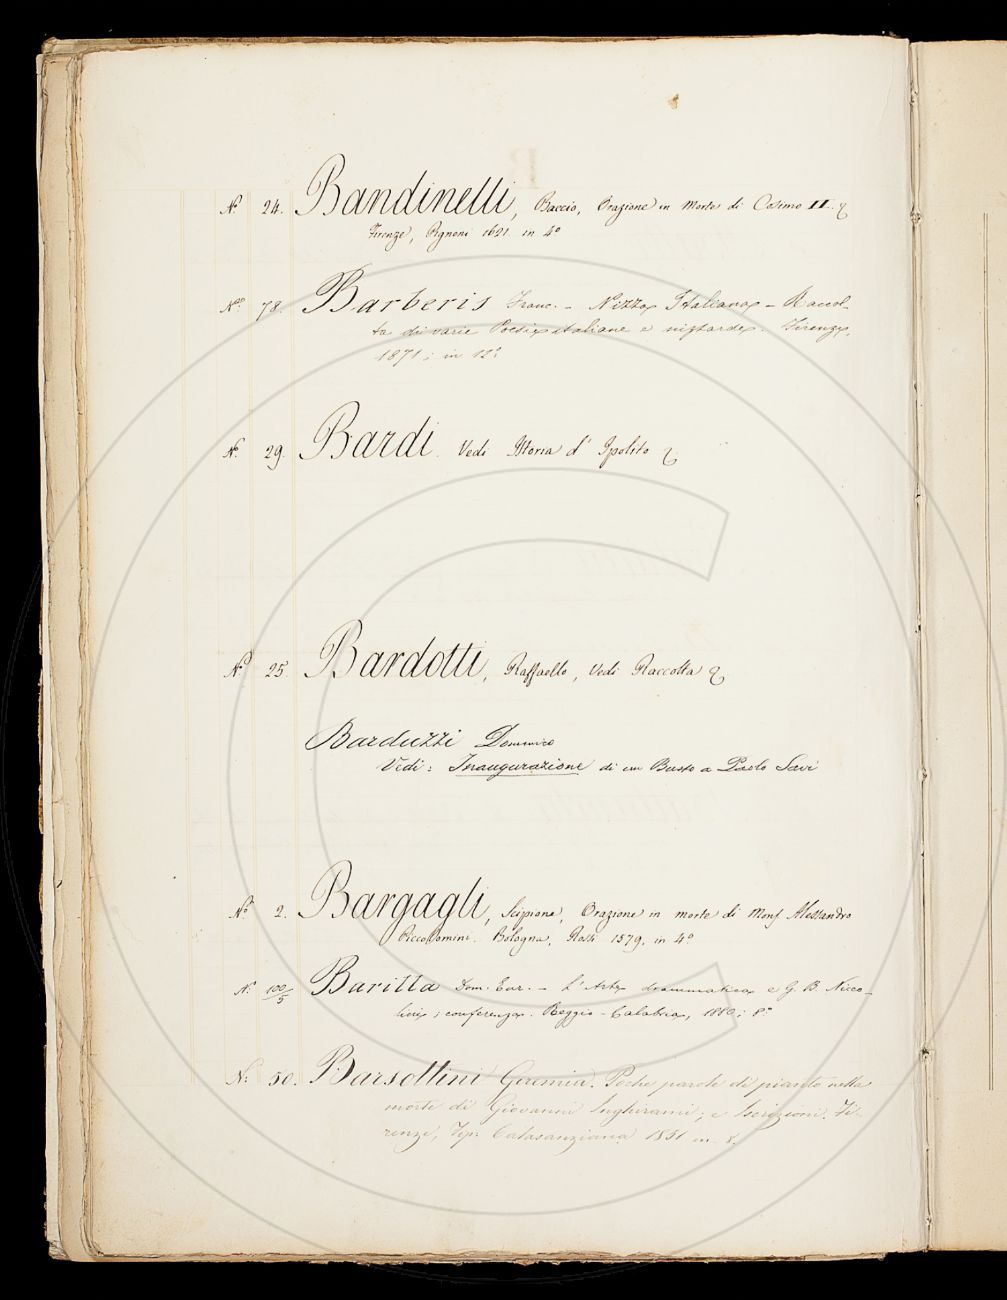 N.º 24. Bandinelli, Baccio, Orazione in Morte di Cosimo II. &
Firenze, Pignoni 1621 in 4º
N.º 78. Barberis Franc. - Nizza Italiana - Raccol-
ta di varie Poesie italiane e nizzarde. Firenze,
1871; in 12º
N.º 29. Bardi. Vedi Istoria d' Ipolito &
N.º 25 Bardotti, Raffaello, Vedi Raccolta &
Barduzzi Domenico
Vedi: Inaugurazione di un Busto a Paolo Savi
N.º 2. Bargagli, Scipione, Orazione in morte di Mons Alessandro
Piccolomini. Bologna, Rossi 1579. in 4º
N.º 100/5 Barilla Dom. Eur. - L' Arte drammatica e G. B. Nicco-
lini; conferenza. Reggio-Calabria, 1880; 8º
N.º 50. Barsottini Geremia. Poche parole di pianto nella
morte di Giovanni Inghirami; e Iscrizioni. Fi-
renze, Tip. Calasanziana 1851 in 8.